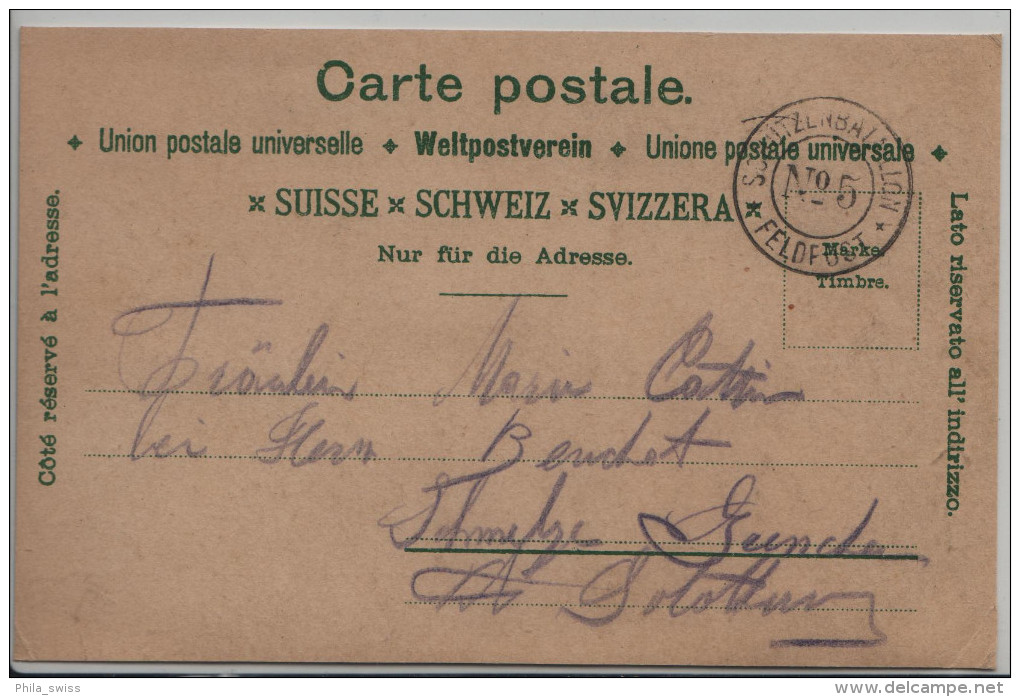 Carte postale.
✦ Union postale universelle ✦ Weltpostverein ✦ Unione postale universale ✦
× SUISSE × SCHWEIZ × SVIZZERA ×
Nur für die Adresse.
SCHÜTZENBATAILLON
No 5
FELDPOST
Marke.
Timbre.
Côté réservé à l'adresse.
Lato riservato all' indirizzo.
Fräulein Marie
bei Herrn
Kt Solothurn
Phila_swiss
delcampe.net